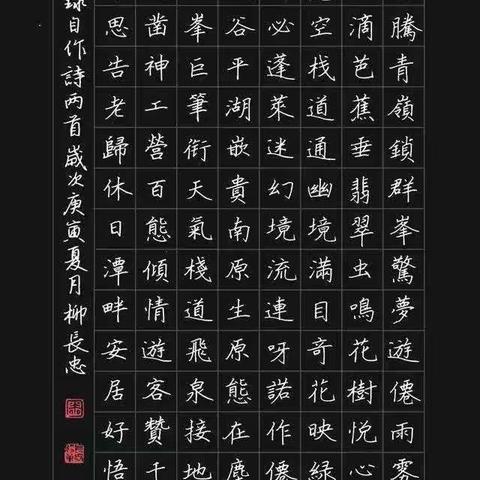 騰青嶺鎖群峯驚夢遊僊雨霧
滴芭蕉垂翡翠虫鳴花樹悅心
空栈道通幽境滿目奇花映綠
必蓬萊迷幻境流連呀諾作僊
谷平湖嵌貴南原生原態在塵
峯巨筆衔天氣棧道飛泉接地
凿神工營百態傾情遊客贊千
思告老歸休日潭畔安居好悟
錄自作詩两首歲次庚寅夏月柳長忠